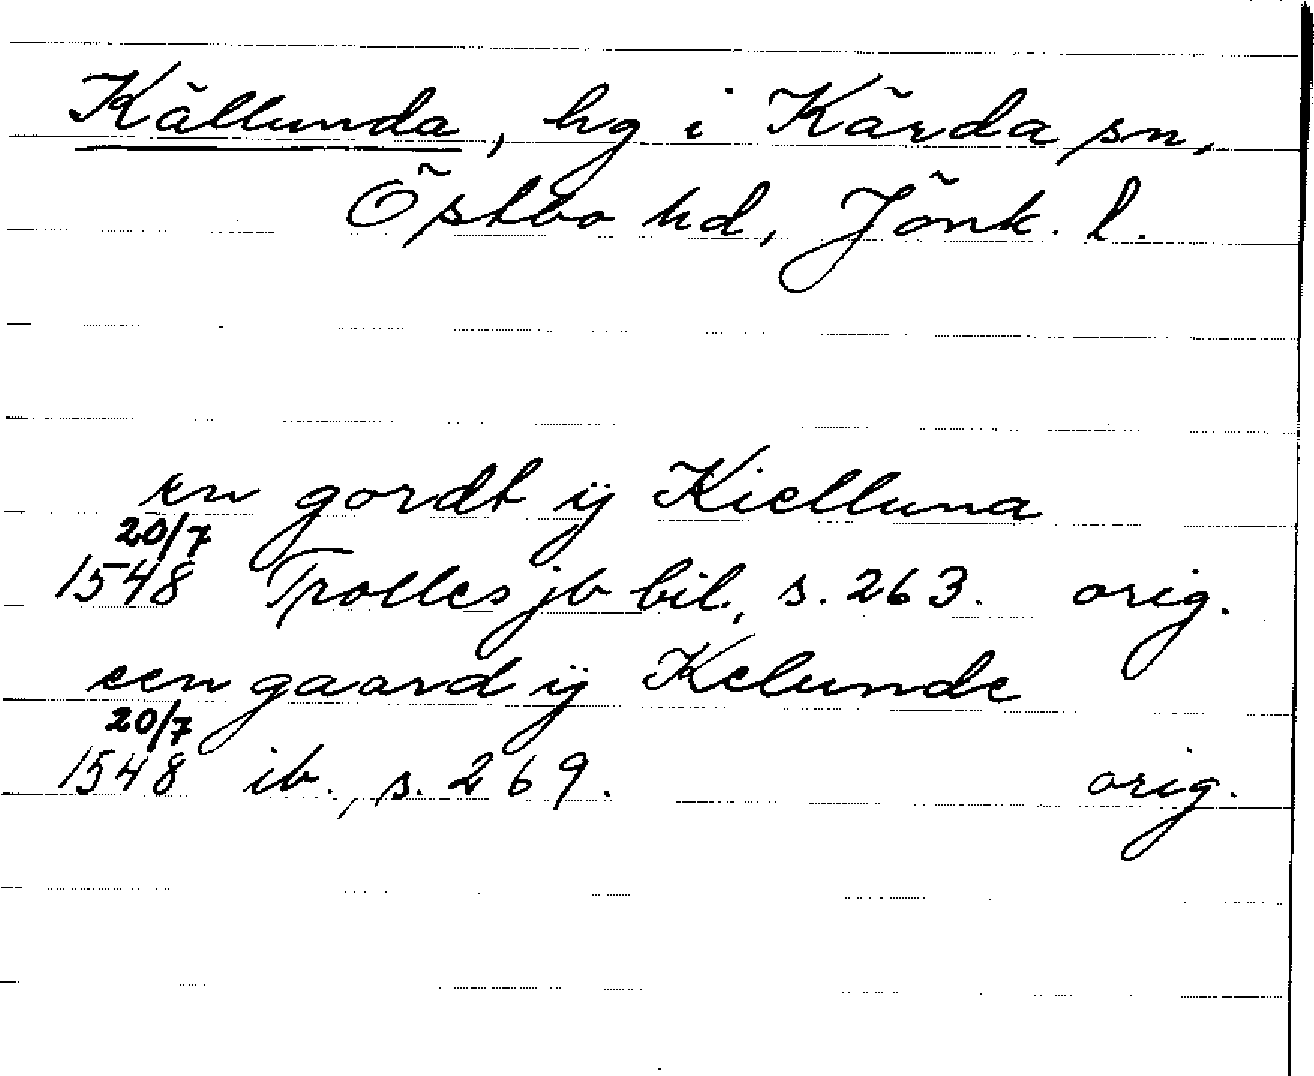 Källunda, hg i Kärda sn,
Östbo hd, Jönk. l.
en gordt ij Kielluna
20/7
1548 Trolles jb bil., s. 263. orig.
een gaard ij Kelunde
20/7
1548 ib., s. 269. orig.